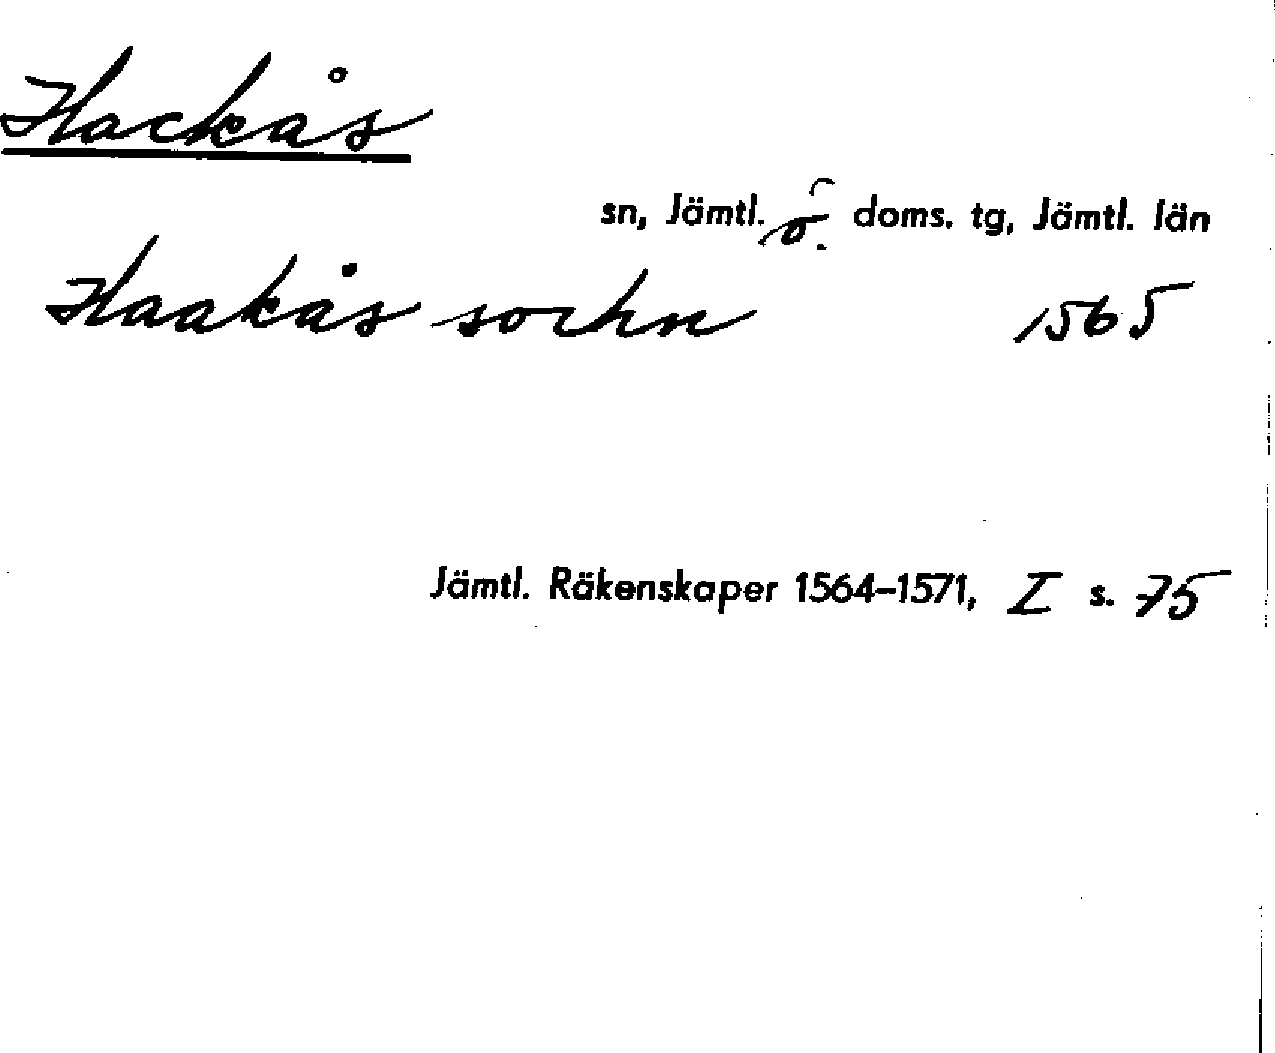 Hackås
sn, Jämtl. ö. doms. tg, Jämtl. län
Haakås sochn 1565
Jämtl. Räkenskaper 1564–1571, I s. 75